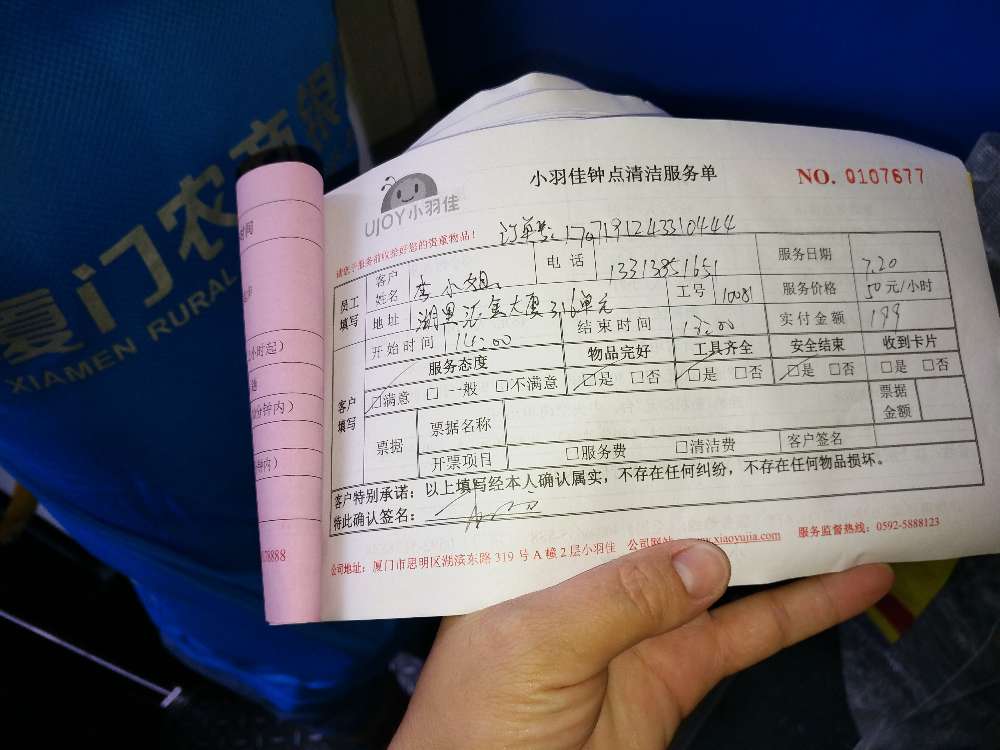 厦门农商银
XIAMEN RURAL
UJOY小羽佳
小羽佳钟点清洁服务单
NO. 0107677
请您于服务前收拾好您的贵重物品!
订单号:
员工填写 客户姓名 李小姐 电话 13313851651 服务日期 7.20
地址 湖里汇金大厦316单元 工号 10081 服务价格 50元/小时
开始时间 14:00 结束时间 18:00 实付金额 199
客户填写 服务态度 物品完好 工具齐全 安全结束 收到卡片
□满意 □一般 □不满意 □是 □否 □是 □否 □是 □否 □是 □否
票据 票据名称 票据金额
开票项目 □服务费 □清洁费 客户签名
客户特别承诺:以上填写经本人确认属实,不存在任何纠纷,不存在任何物品损坏。
特此确认签名:
公司地址:厦门市思明区湖滨东路 319 号 A 幢 2 层小羽佳 公司网 www.xiaoyujia.com 服务监督热线:0592-5888123
时间
小时起)
分钟内)
钟内)
78888